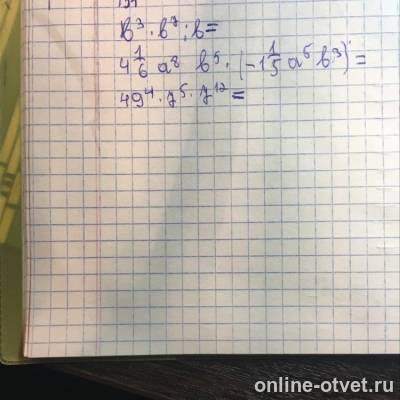 b³ · b⁷ : b =
4 1/6 a⁸ b⁵ · (-1 1/5 a⁵ b³) =
49⁴ · 7⁵ · 7¹² =
online-otvet.ru